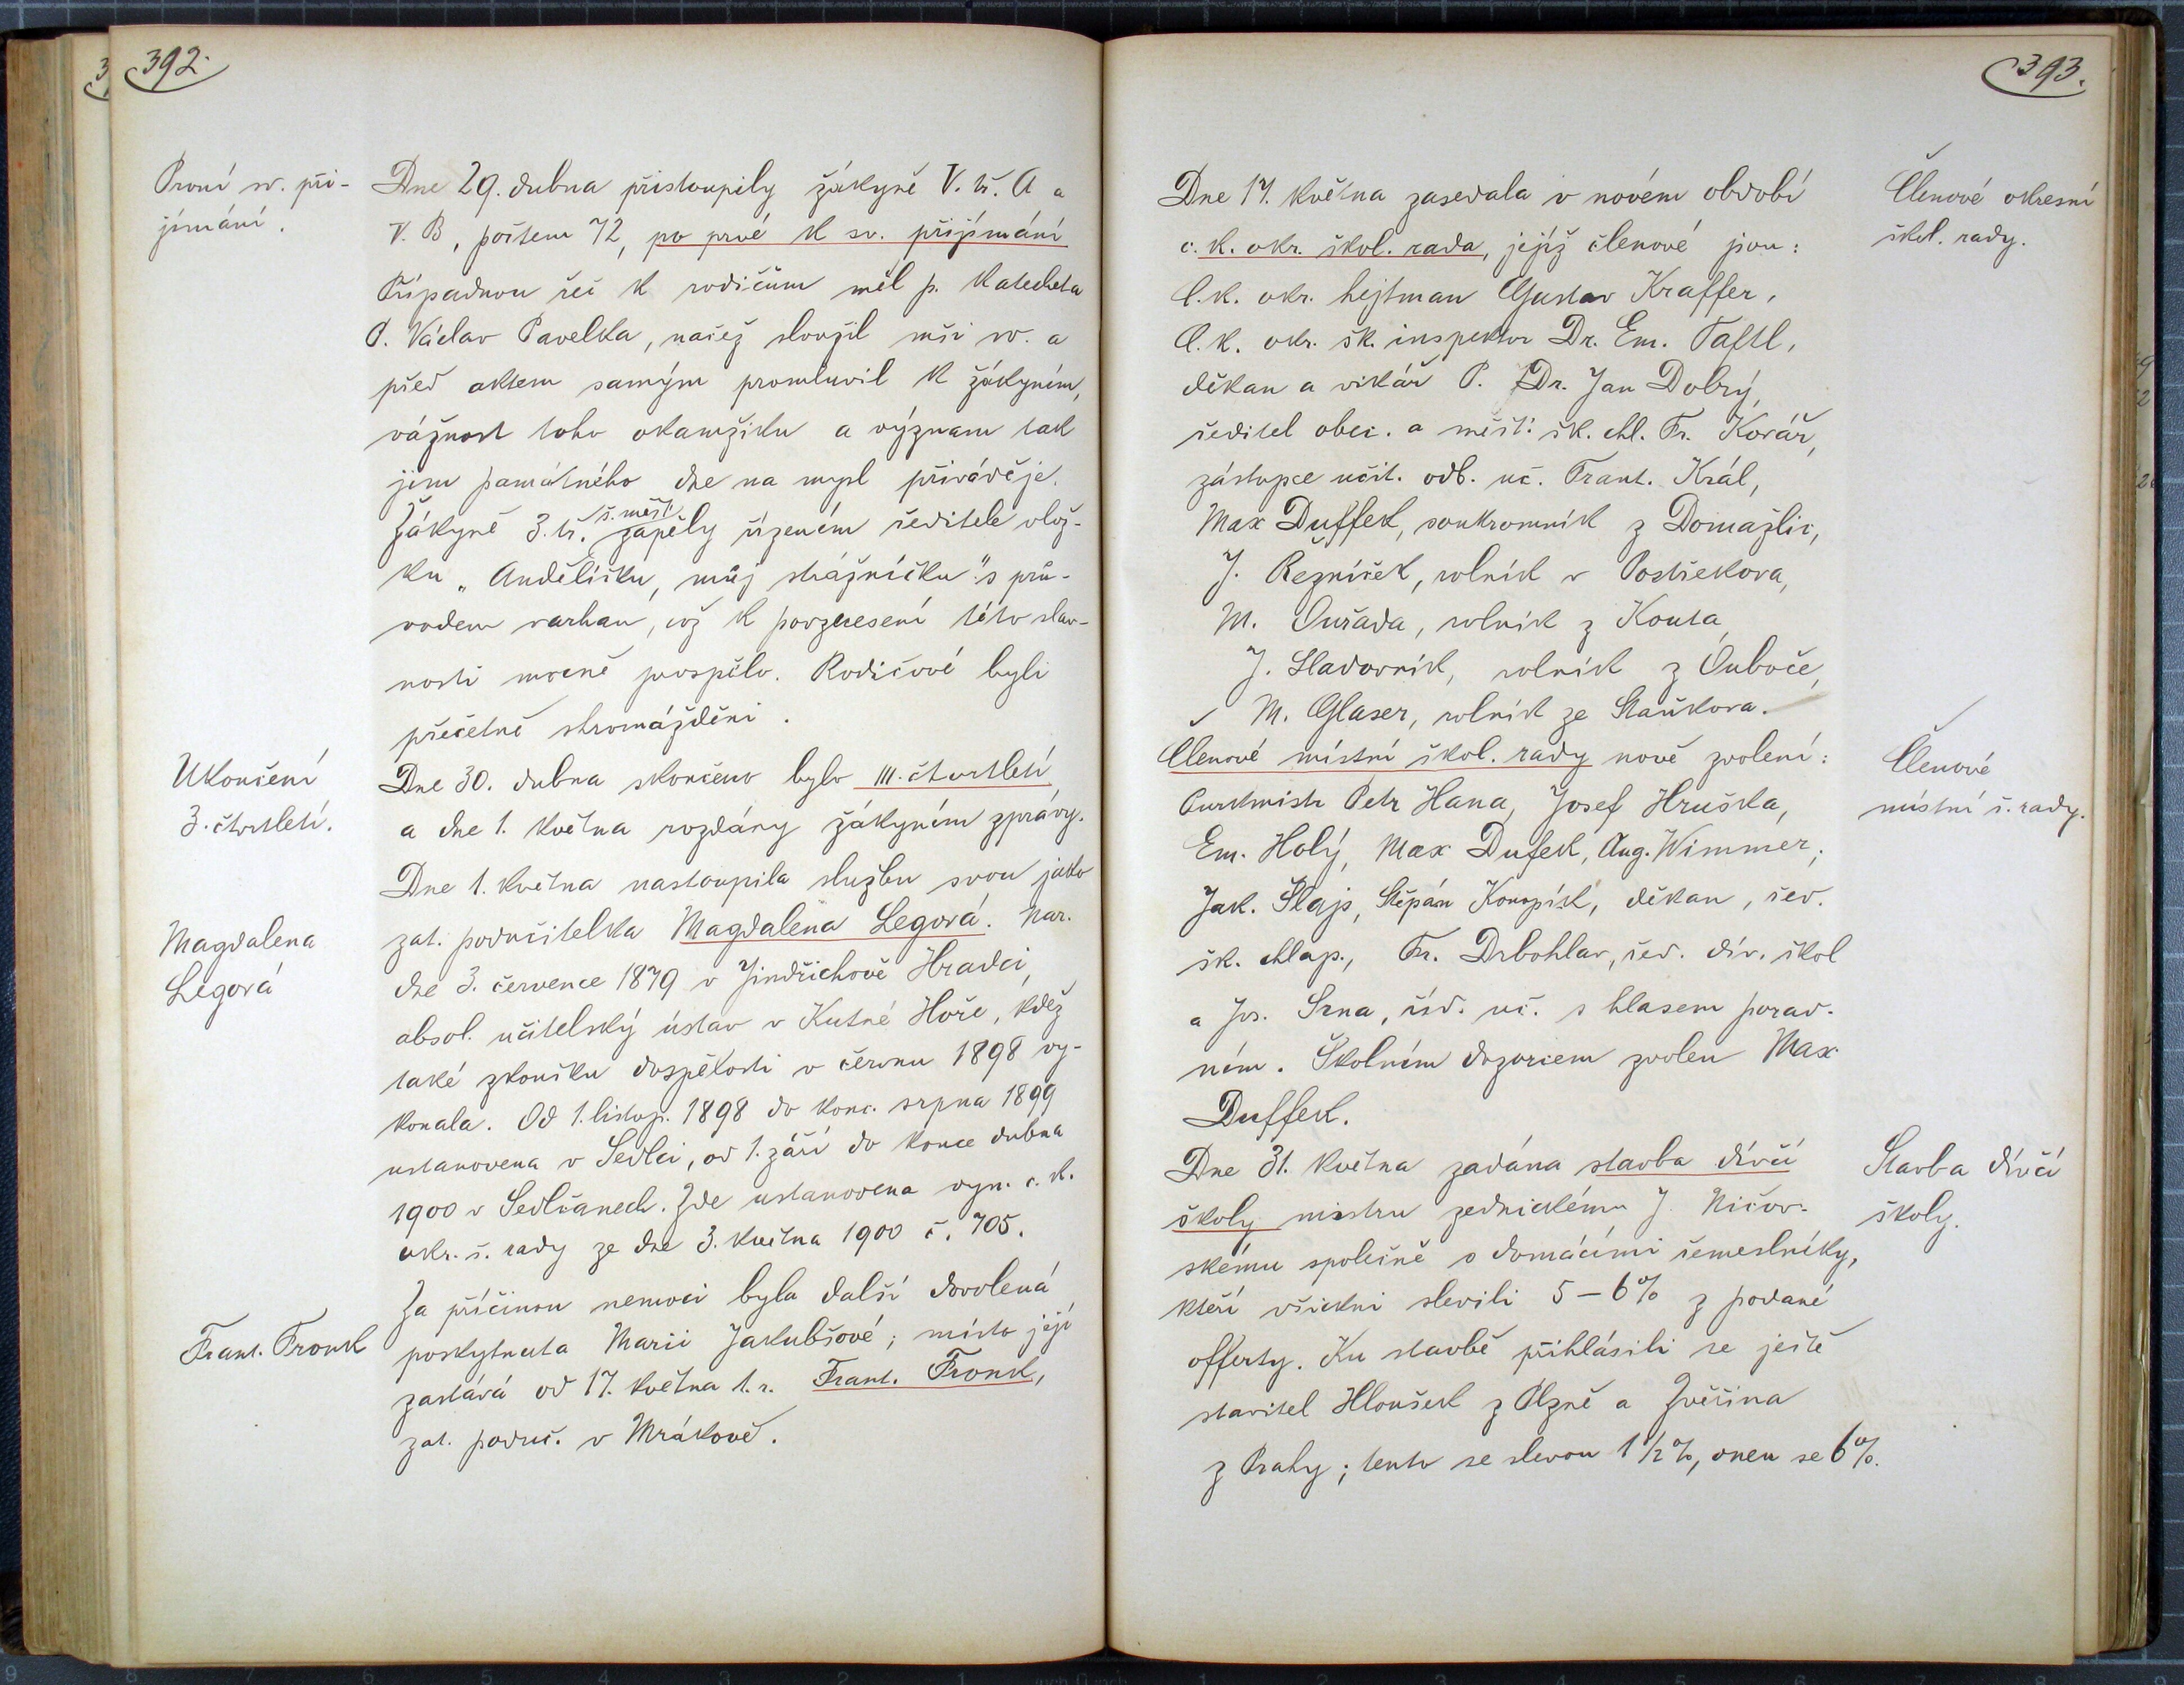 392.
První sv. při-
jímání.
Dne 29. dubna přistoupily žákyně V. tř. A a
V. B, počtem 72, po prvé k sv. přijímání
Případnou řeč k rodičům měl p. katecheta
P. Václav Pavelka, načež sloužil mši sv. a
před aktem samým promluvil k žákyním,
vážnost toho okamžiku a význam tak
jim památného dne na mysl přiváděje.
š. měšť.
Žákyně 3. tř. zapěly řízením ředitele vlož-
ku „Andělíčku, můj strážníčku" s prů-
vodem varhan, což k povznesení této slav-
nosti mocně prospělo. Rodičové byli
přečetně shromážděni.
Ukončení
3. čtvrtletí.
Dne 30. dubna skončeno bylo III. čtvrtletí
a dne 1. května rozdány žákyním zprávy.
Dne 1. května nastoupila službu svou jako
Magdalena
Legová
zat. podučitelka Magdalena Legová. Nar.
dne 3. července 1879 v Jindřichově Hradci,
absol. učitelský ústav v Kutné Hoře, kdež
také zkoušku dospělosti v červnu 1898 vy-
konala. Od 1. listop. 1898 do konc. srpna 1899
ustanovena v Sedlci, od 1. září do konce dubna
1900 v Sedlčanech. Zde ustanovena vyn. c. k.
okr. š. rady ze dne 3. května 1900 č. 705.
Za příčinou nemoci byla další dovolená
Frant. Fronk
poskytnuta Marii Jakubšové; místo její
zastává od 17. května t. r. Frant. Fronk,
zat. poduč. v Mrákově.
393.
Dne 17. května zasedala v novém období
c. k. okr. škol. rada, jejíž členové jsou:
Členové okresní
škol. rady.
C. k. okr. hejtman Gustav Kraffer,
C. k. okr. šk. inspektor Dr. Em. Taftl,
děkan a vikář P. Dr. Jan Dobrý,
ředitel obec. a měšť. šk. chl. Fr. Kovář,
zástupce učit. odb. uč. Frant. Král,
Max Duffek, soukromník z Domažlic,
J. Řezníček, rolník v Postřekova,
M. Ouřada, rolník z Kouta,
J. Sladovník, rolník z Ouboče,
M. Glaser, rolník ze Staňkova.
Členové místní škol. rady nově zvolení:
Členové
místní š. rady.
Purkmistr Petr Hana, Josef Hruška,
Em. Holý, Max Dufek, Aug. Wimmer,
Jak. Šlajs, Štěpán Konopík, děkan, řed.
šk. chlap., Fr. Drbohlav, řed. dív. škol
a Jos. Srna, říd. uč. s hlasem porad-
ním. Školním dozorcem zvolen Max
Duffek.
Dne 31. května zadána stavba dívčí
školy mistru zednickému J. Ničov-
Stavba dívčí
školy.
skému společně s domácími řemeslníky,
kteří všickni slevili 5 – 6% z podané
offerty. Ku stavbě přihlásili se ještě
stavitel Hloušek z Plzně a Zvěřina
z Prahy; tento se slevou 1 1/2 %, onen se 6%.